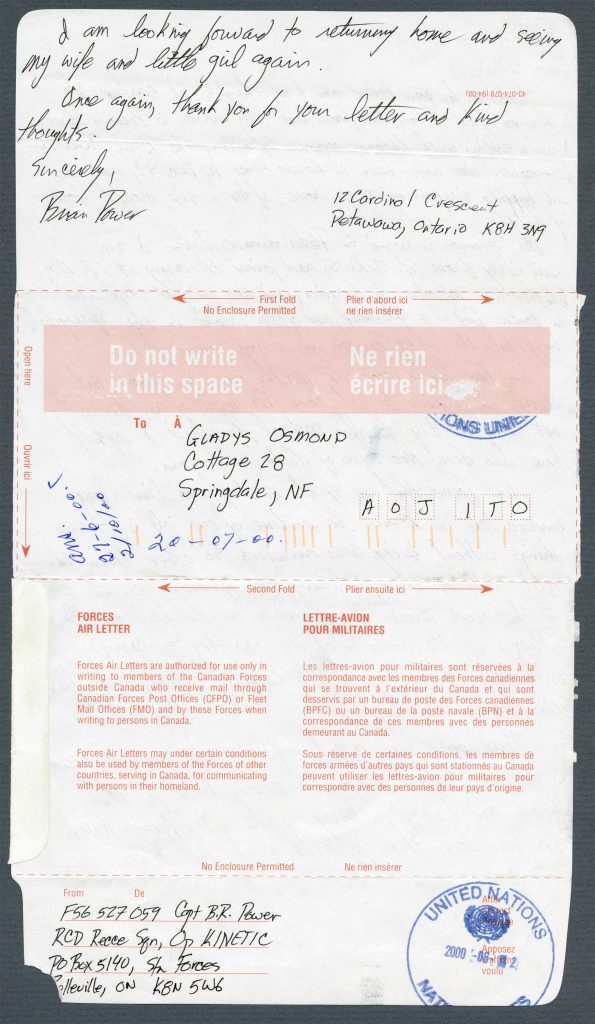 I am looking forward to returning home and seeing
my wife and little girl again.
43-074-078 (94-08)
Once again, thank you for your letter and kind
thoughts.
Sincerely,
Brian Power
12 Cardinal Crescent
Petawawa, Ontario K8H 3N9
First Fold
No Enclosure Permitted
Plier d'abord ici
ne rien insérer
Open here
Ouvrir ici
Do not write
in this space
Ne rien
écrire ici
IONS UNIE
To À
GLADYS OSMOND
Cottage 28
Springdale, NF
A0J 1T0
27-6-00.
2/10/00
20-07-00.
Second Fold
Plier ensuite ici
FORCES
AIR LETTER
Forces Air Letters are authorized for use only in
writing to members of the Canadian Forces
outside Canada who receive mail through
Canadian Forces Post Offices (CFPO) or Fleet
Mail Offices (FMO) and by these Forces when
writing to persons in Canada.
Forces Air Letters may under certain conditions
also be used by members of the Forces of other
countries, serving in Canada, for communicating
with persons in their homeland.
LETTRE-AVION
POUR MILITAIRES
Les lettres-avion pour militaires sont réservées à la
correspondance avec les membres des Forces canadiennes
qui se trouvent à l'extérieur du Canada et qui sont
desservis par un bureau de poste des Forces canadiennes
(BPFC) ou un bureau de la poste navale (BPN) et à la
correspondance de ces membres avec des personnes
demeurant au Canada.
Sous réserve de certaines conditions, les membres de
forces armées d'autres pays qui sont stationnés au Canada
peuvent utiliser les lettres-avion pour militaires pour
correspondre avec des personnes de leur pays d'origine.
No Enclosure Permitted
Ne rien insérer
From De
F56 527 059 Capt B.R. Power
RCD Recce Sqn, Op KINETIC
PO Box 5140, Stn Forces
elleville, ON K8N 5W6
UNITED NATIONS
2000
Apposez
voulu